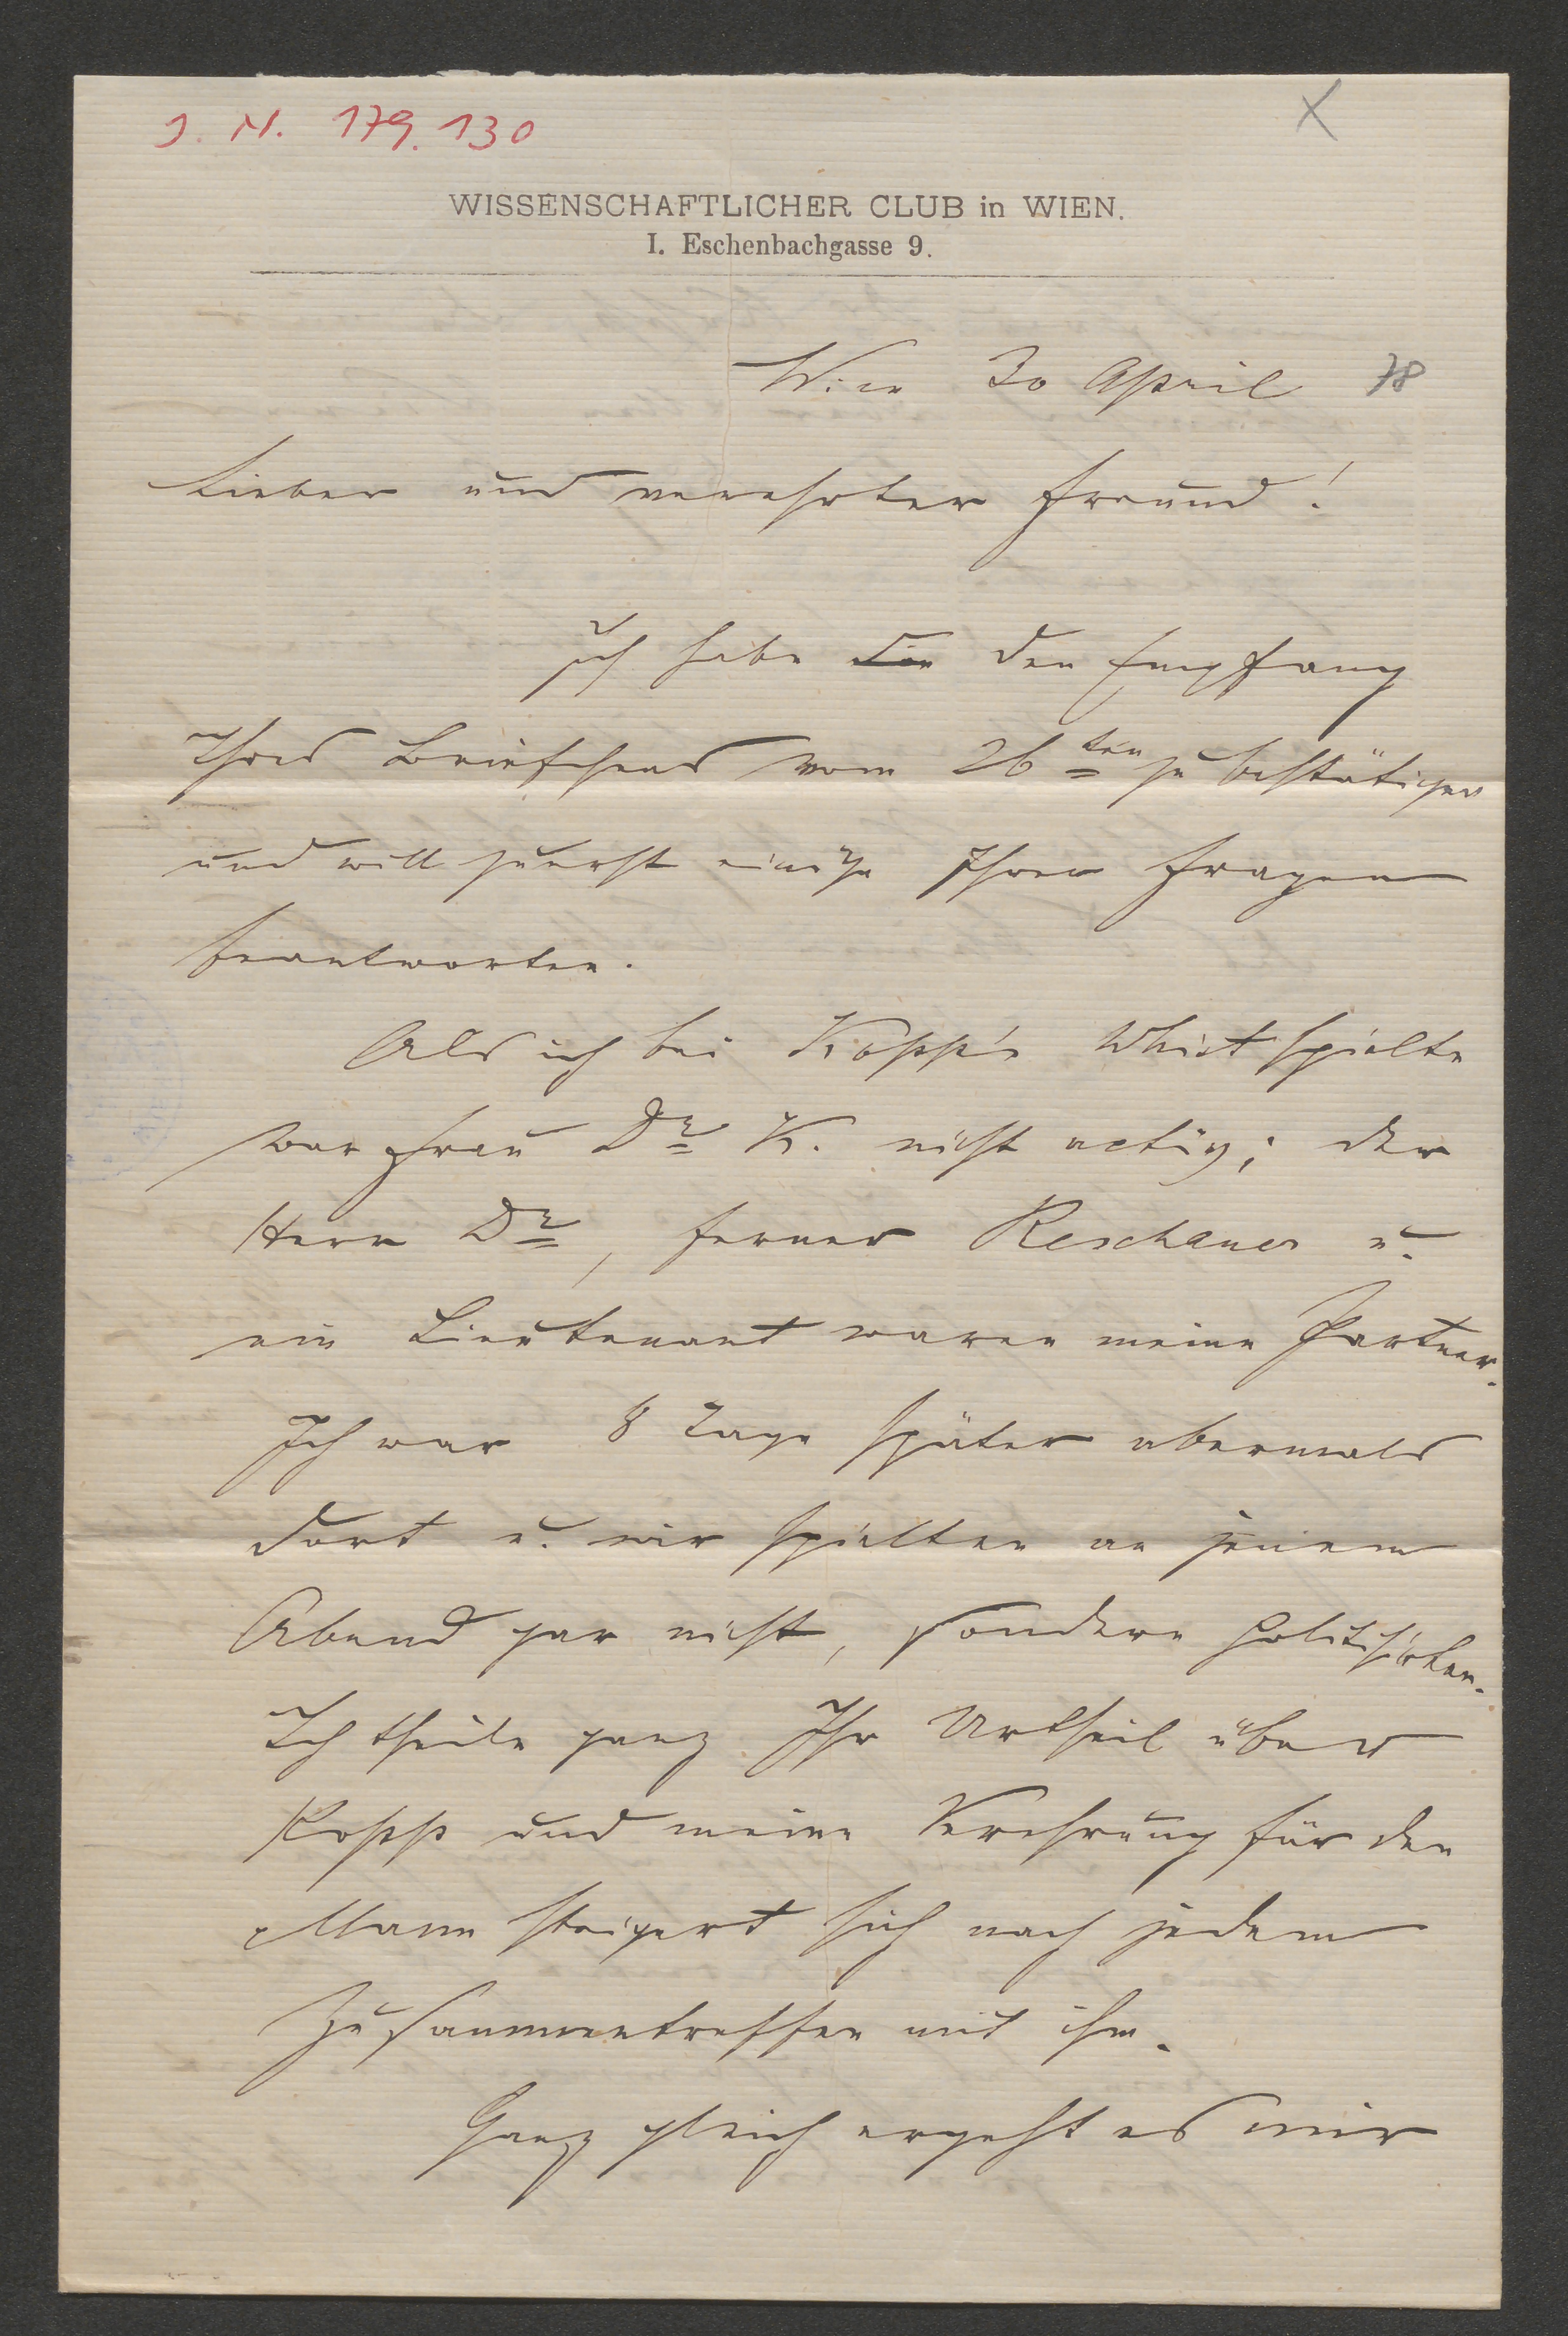 J. N. 179.130
X
WISSENSCHAFTLICHER CLUB in WIEN.
I. Eschenbachgasse 9.
Wien 30 April 78
Lieber und verehrter Freund!
Ich habe den Empfang
Ihres Briefchens vom 26ten zu bestätigen
und will zuerst einige Ihrer Fragen
beantworten.
Als ich bei Kopp's Whist spielte
war Frau Dr K. nicht activ; der
Herr Dr, ferner Reschauer u.
ein Lieutenant waren meine Partner.
Ich war 8 Tage später abermals
dort u. wir spielten an jenem
Abend gar nicht, sondern politisirten.
Ich theile ganz Ihr Urtheil über
Kopp und meine Verehrung für den
Mann steigert sich nach jedem
Zusammentreffen mit ihm.
Ganz gleich ergeht es mir